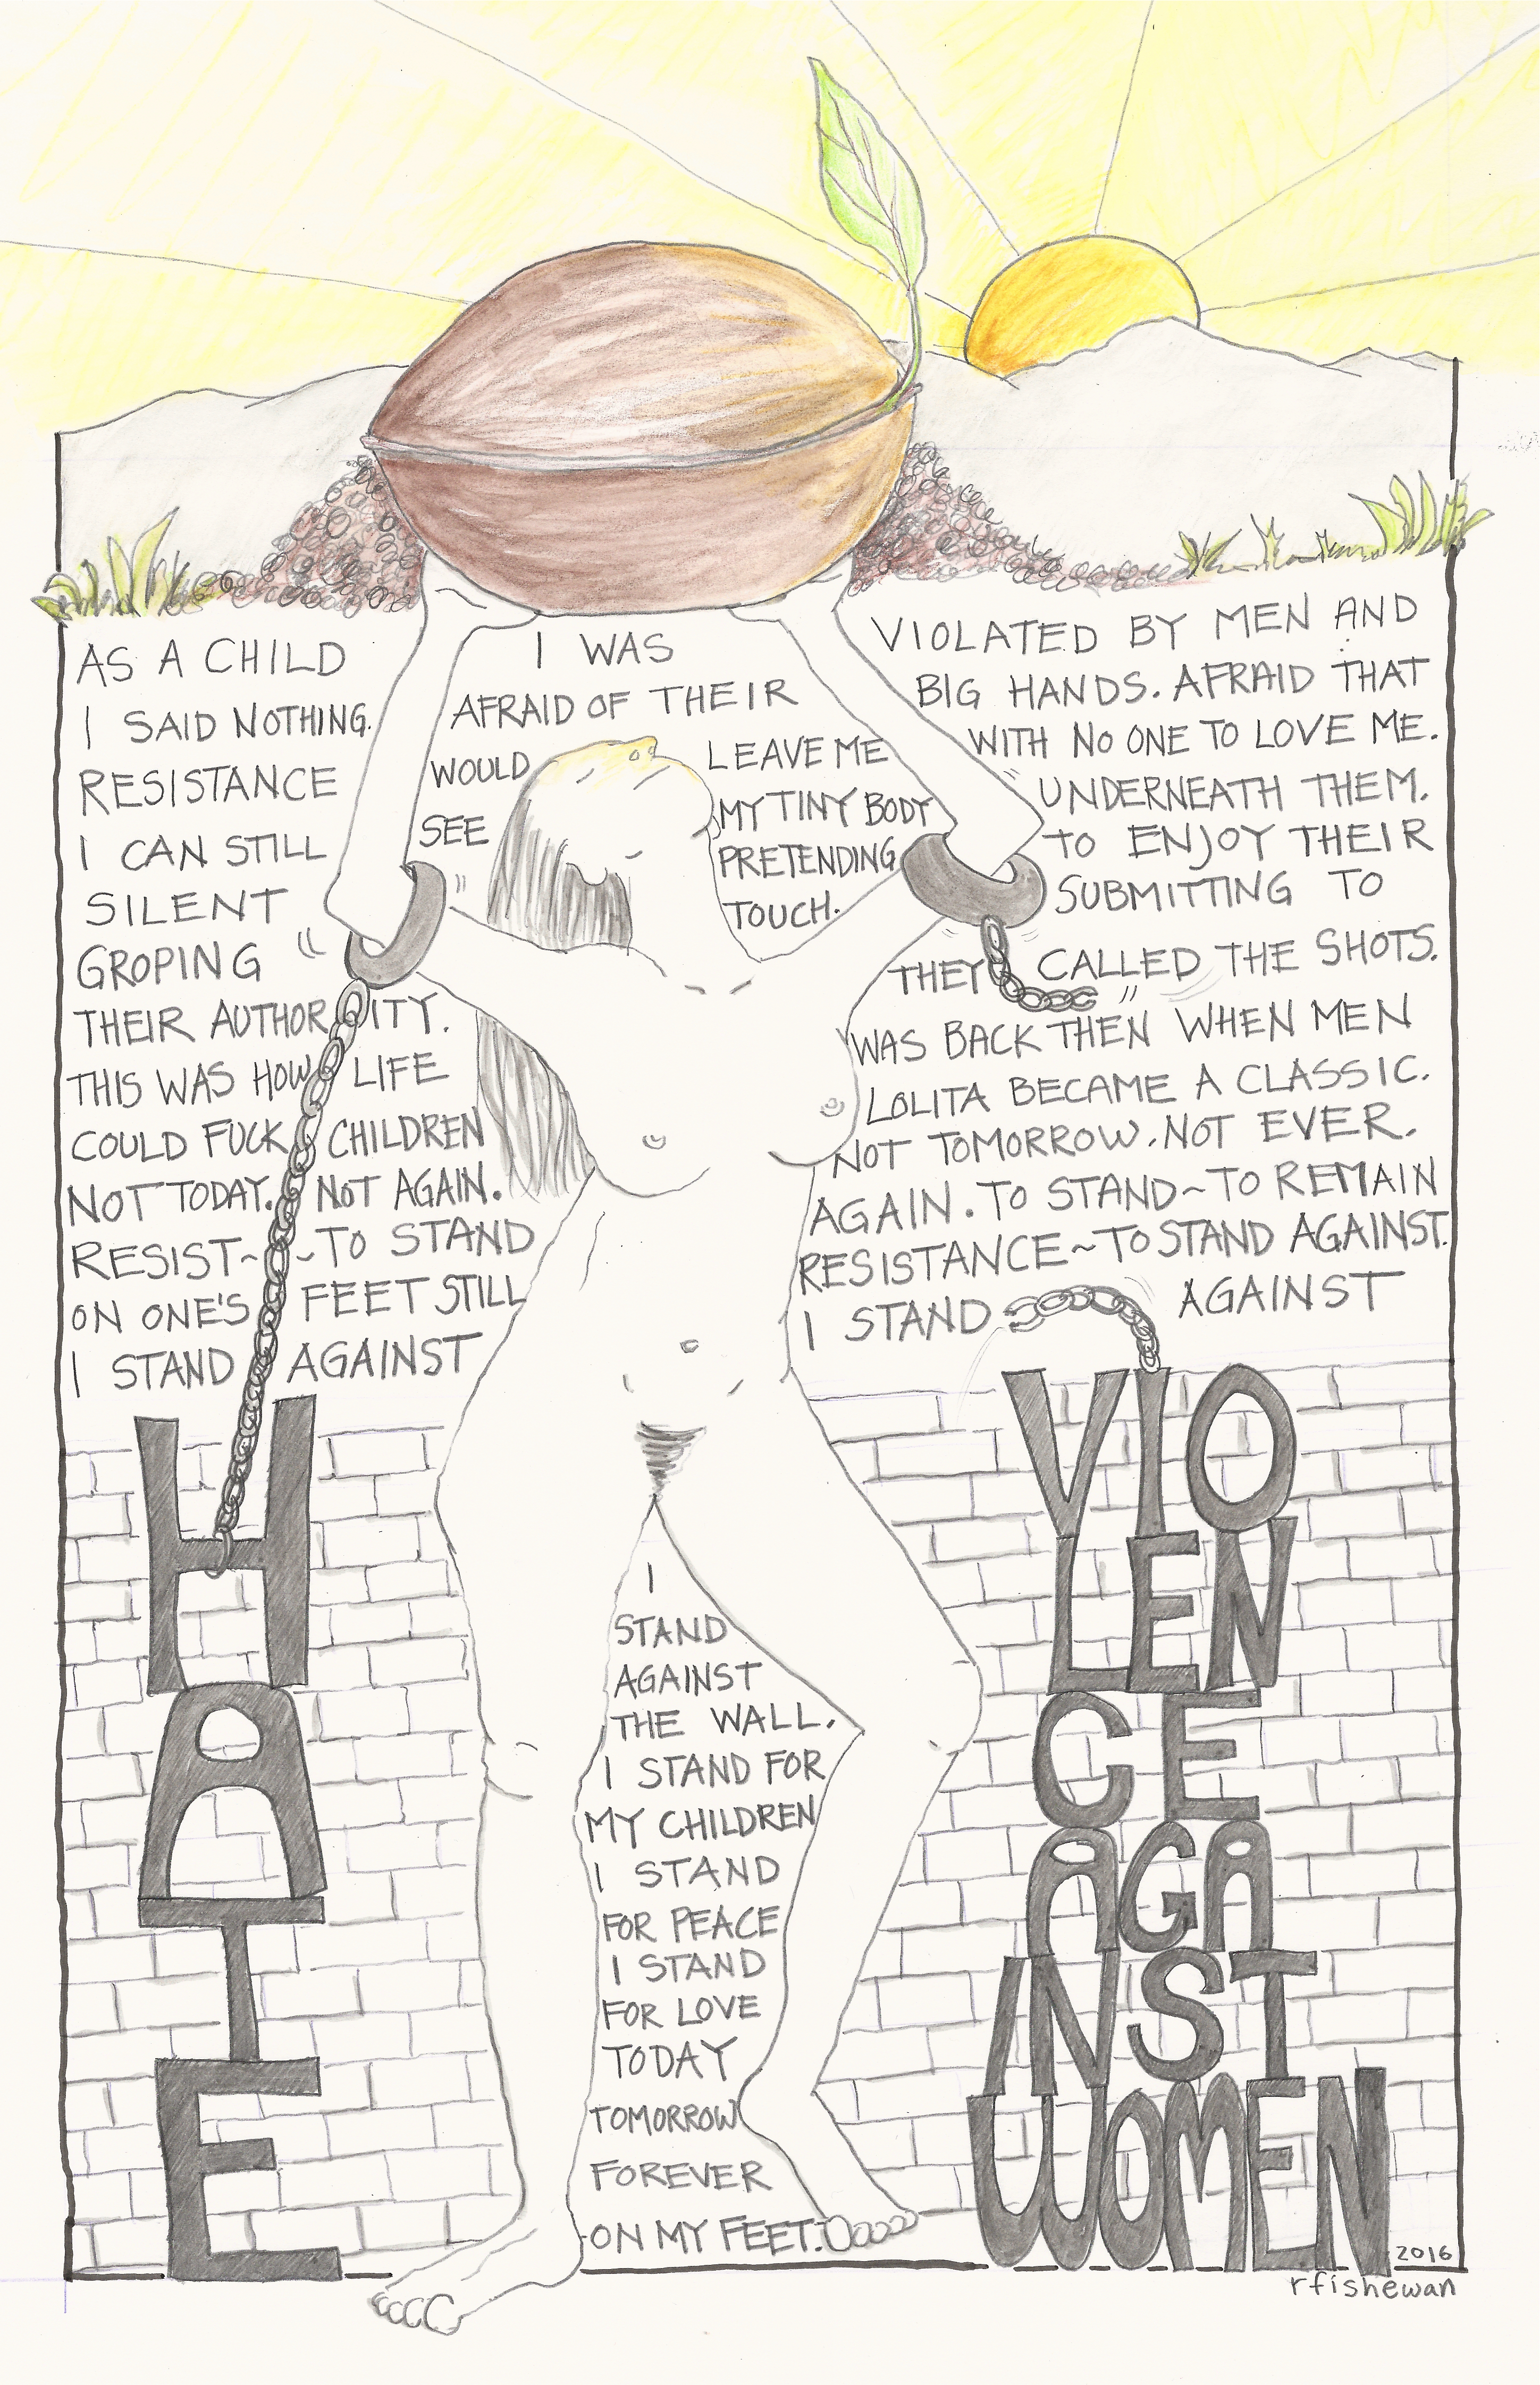 AS A CHILD I WAS VIOLATED BY MEN AND
I SAID NOTHING. AFRAID OF THEIR BIG HANDS. AFRAID THAT
RESISTANCE WOULD LEAVE ME WITH NO ONE TO LOVE ME.
I CAN STILL SEE MY TINY BODY UNDERNEATH THEM.
SILENT PRETENDING TO ENJOY THEIR
GROPING TOUCH. SUBMITTING TO
THEIR AUTHORITY. THEY CALLED THE SHOTS.
THIS WAS HOW LIFE WAS BACK THEN WHEN MEN
COULD FUCK CHILDREN LOLITA BECAME A CLASSIC.
NOT TODAY. NOT AGAIN. NOT TOMORROW. NOT EVER.
RESIST~ ~TO STAND AGAIN. TO STAND~TO REMAIN
ON ONE'S FEET STILL RESISTANCE~TO STAND AGAINST.
I STAND AGAINST I STAND AGAINST
HATE
I
STAND
AGAINST
THE WALL.
I STAND FOR
MY CHILDREN
I STAND
FOR PEACE
I STAND
FOR LOVE
TODAY
TOMORROW
FOREVER
ON MY FEET.
VIO
LEN
CE
AGA
INST
WOMEN
2016
rfishewan